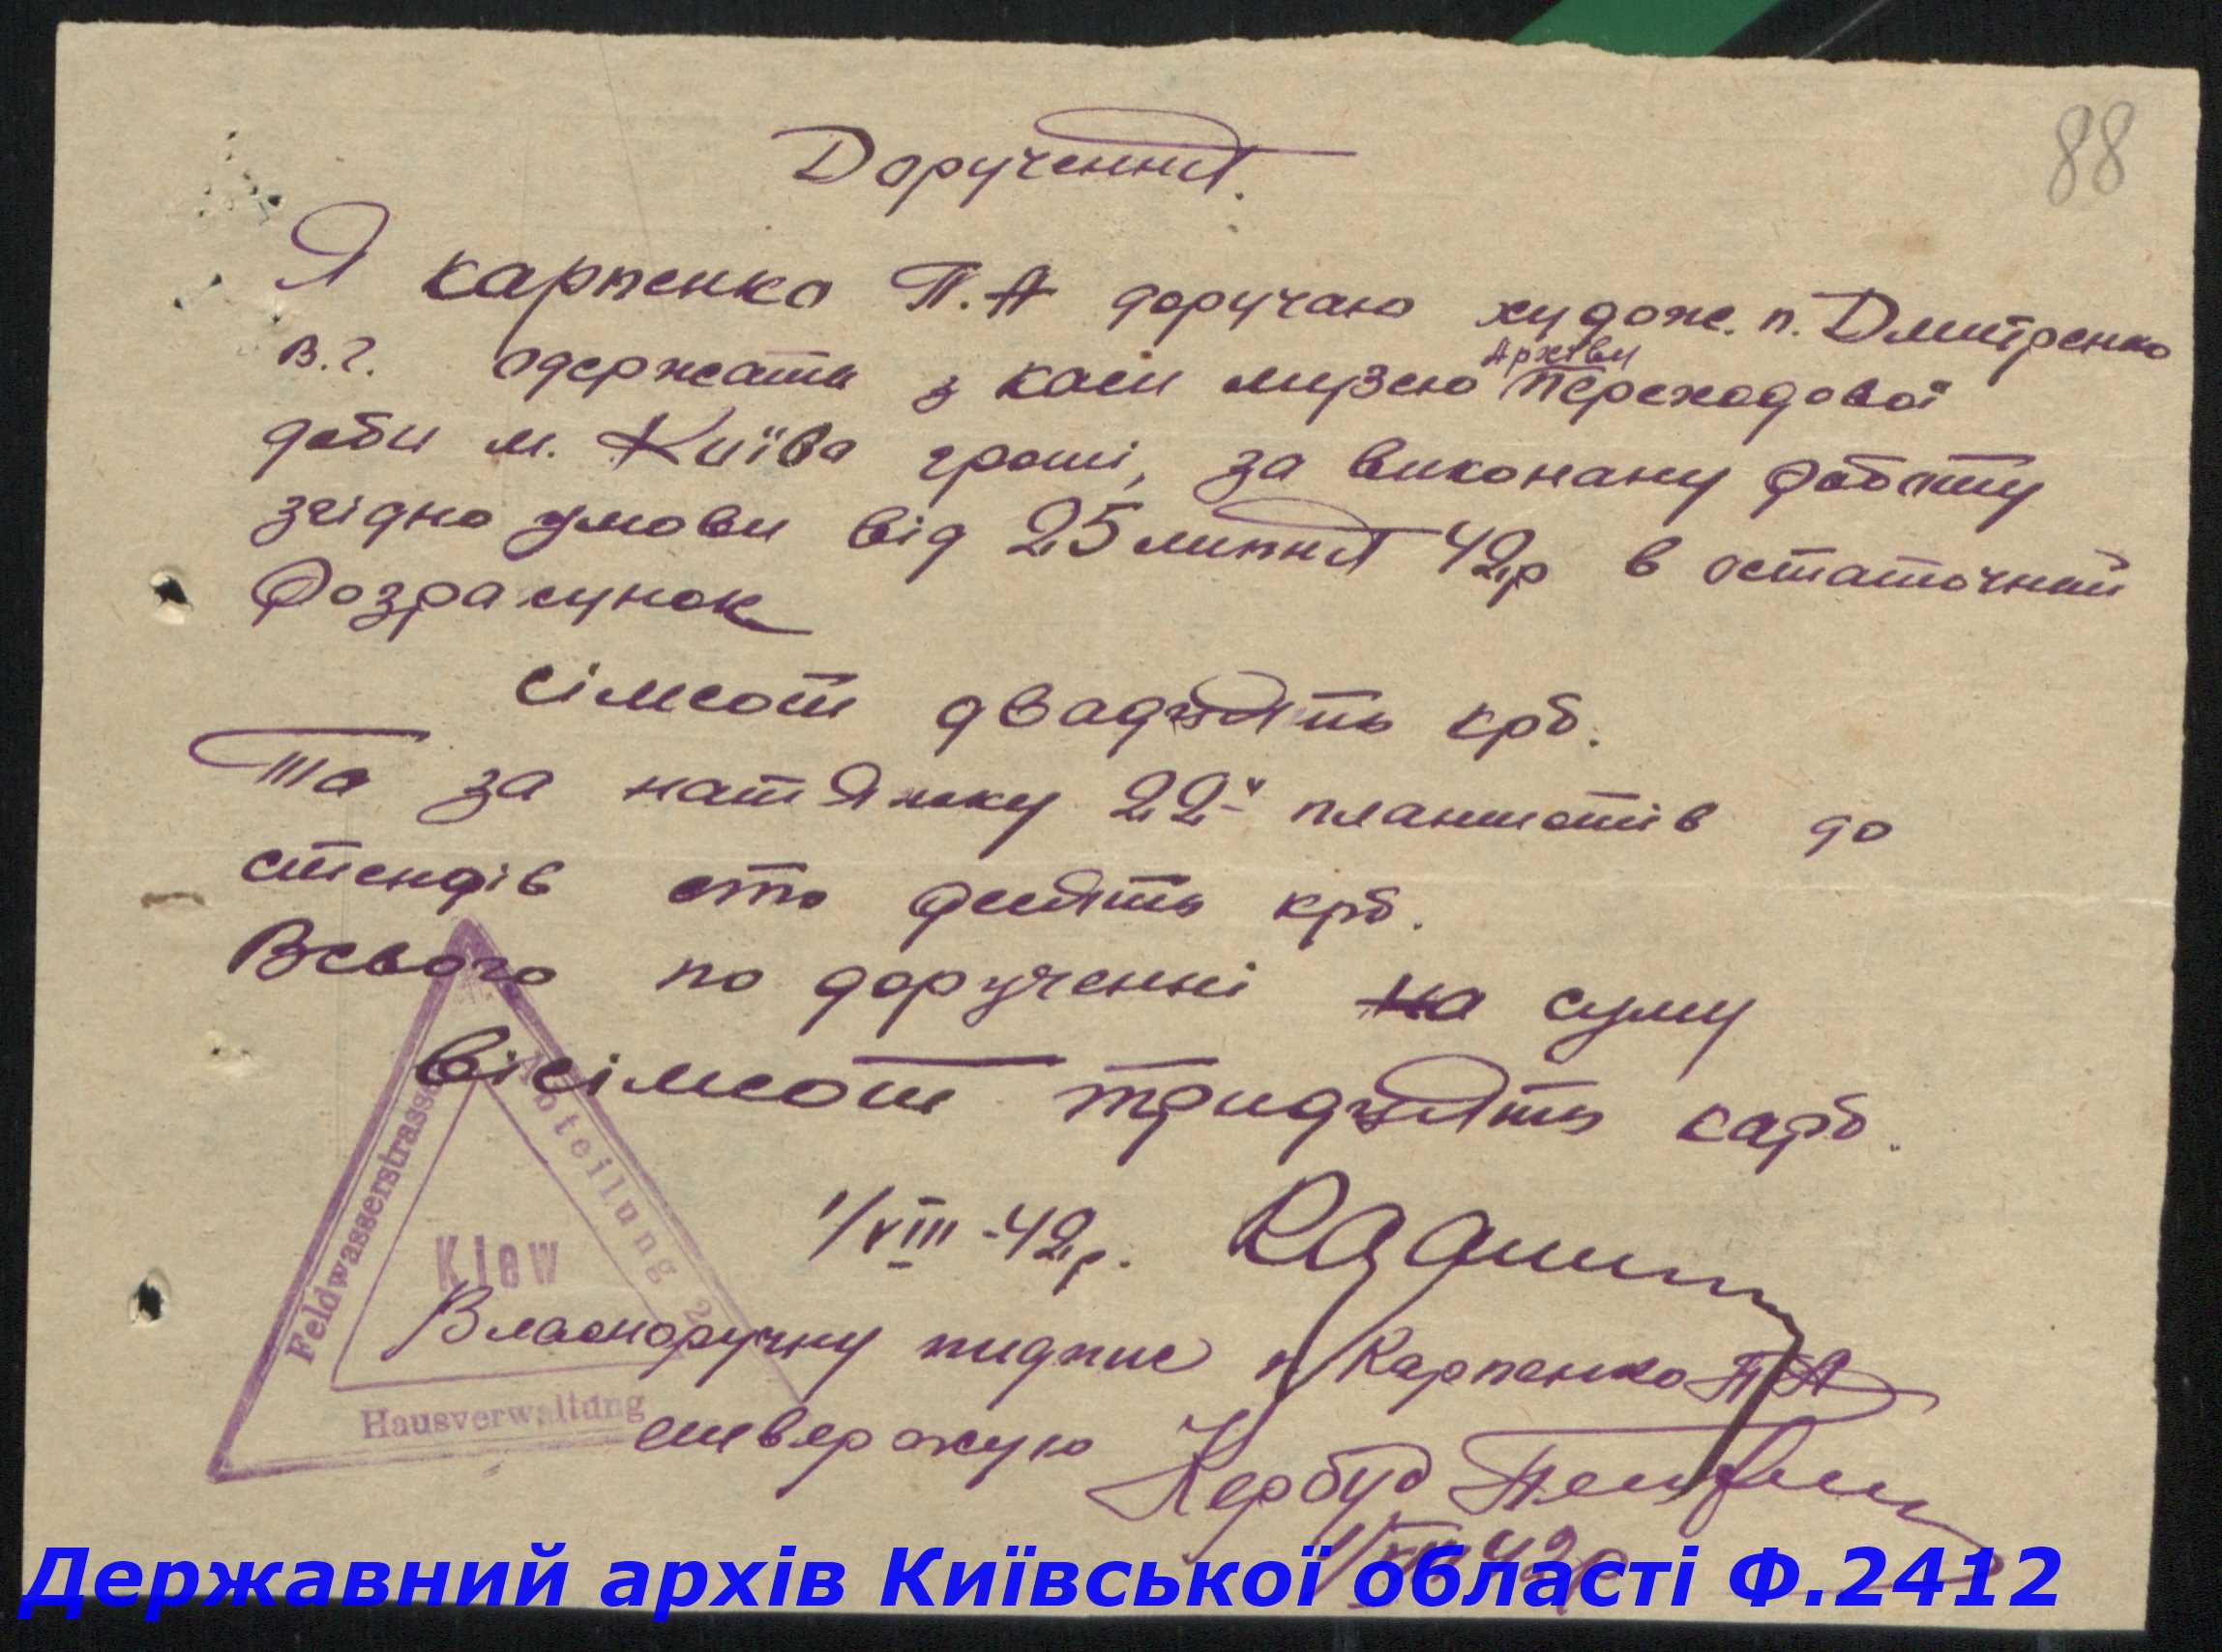 88
Доручення.
Я Карпенко П.А доручаю худож. п. Дмитренко
Архіви
В.Г. одержать з каси музею Переходової
доби м. Київа гроші, за виконану роботу
згідно умови від 25 липня 42р в остаточний
розрахунок
сімсот двадцять крб.
Та за натяжку 22х планшетів до
стендів сто десять крб.
Всього по дорученні на суму
вісімсот тридцять карб.
1/VIII-42р.
Власноручну пидпис п Карпенко П А
стверджую Кербуд
1/VIII 42р
Feldwasserstrasse
Abteilung 2
Kiew
Hausverwaltung
Державний архів Київської області Ф.2412